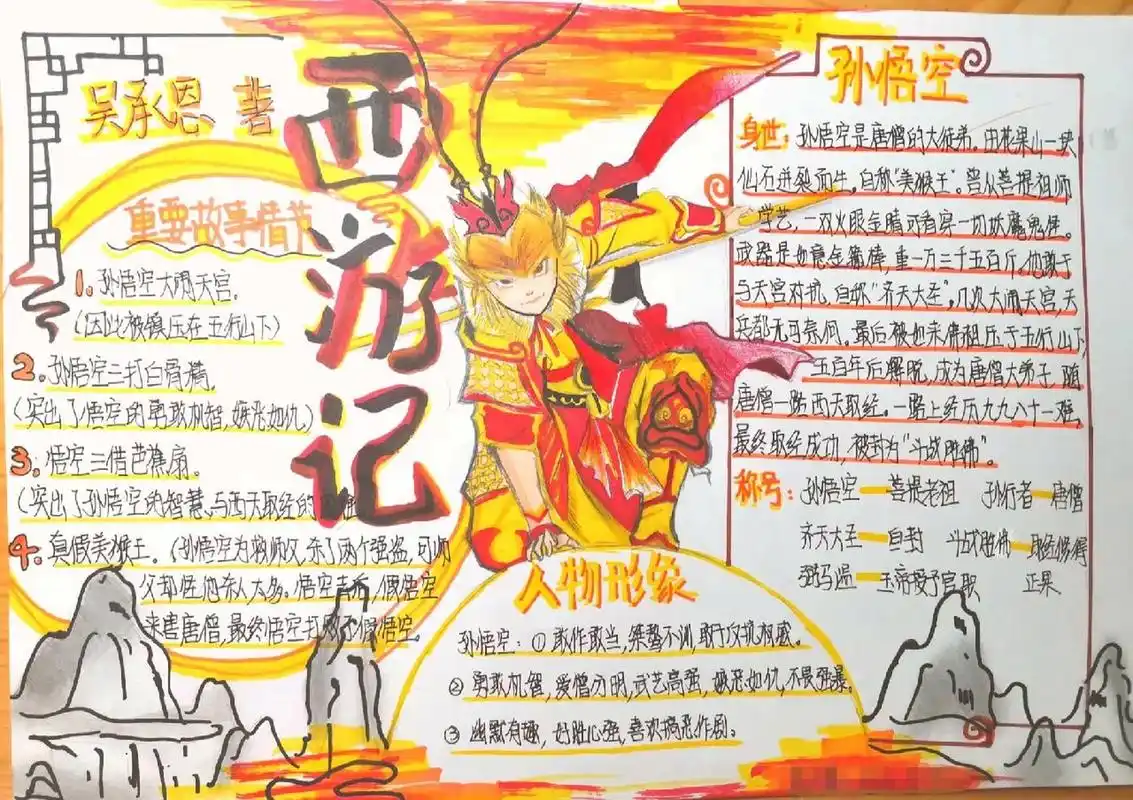 吴承恩 著
西游记
重要故事情节
1. 孙悟空大闹天宫.
(因此被镇压在五行山下)
2. 孙悟空三打白骨精.
(突出了悟空的勇敢机智,嫉恶如仇)
3. 悟空三借芭蕉扇.
(突出了孙悟空的智慧、与西天取经的
4. 真假美猴王. (孙悟空为救师父,杀了两个强盗,可师
父却怪他杀人太多。悟空 假悟空
来害唐僧,最终悟空打 假悟空.
孙悟空
身世: 孙悟空是唐僧的大徒弟。由花果山一块
仙石迸裂而生。自称"美猴王"。曾从菩提祖师
学艺,一双火眼金睛可看穿一切妖魔鬼怪。
武器是如意金箍棒,重一万三千五百斤,他敢于
与天宫对抗,自称"齐天大圣",几次大闹天宫,天
兵都无可奈何。最后被如来佛祖压于五行山下,
五百年后解脱,成为唐僧大弟子,随
唐僧一路西天取经。一路上经历九九八十一难,
最终取经成功,被封为"斗战胜佛"。
称号: 孙悟空—菩提老祖 孙行者—唐僧
齐天大圣—自封 斗战胜佛—取经修得
弼马温—玉帝授予官职 正果
人物形象
孙悟空: ①敢作敢当,桀骜不训,敢于反抗权威。
② 勇敢机智,爱憎分明,武艺高强,嫉恶如仇,不畏强暴。
③ 幽默有趣,好胜心强,喜欢搞恶作剧。